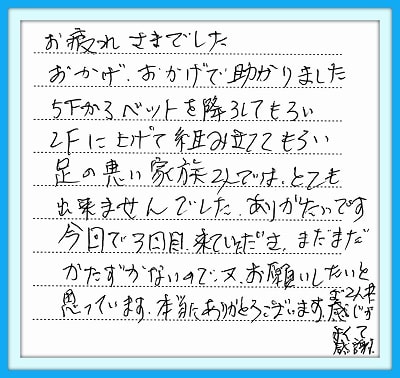 お疲れ さまでした
おかげ、おかげで助かりました
5Fからベットを降ろしてもらい
2Fに上げて組み立ててもらい
足の悪い家族2人では、とても
出来ませんでした、ありがたいです
今回で3回目、来ていただき、まだまだ
かたずかないので、又、お願いしたいと
思っています、本当にありがとうございます、
お2人共
感じが
よくて
感謝、